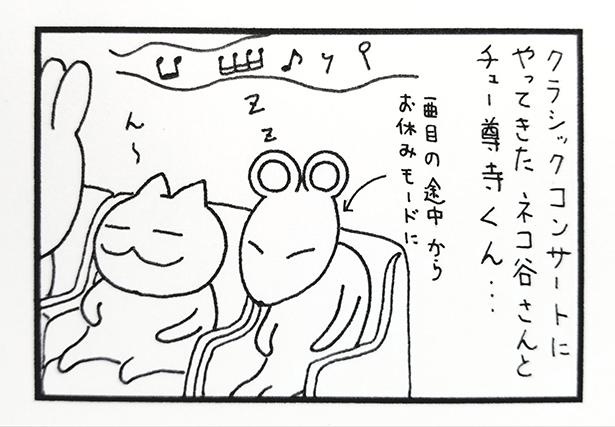 クラシックコンサートに
やってきたネコ谷さんと
チュー尊寺くん…
一曲目の途中から
お休みモードに
z
z
ん〜